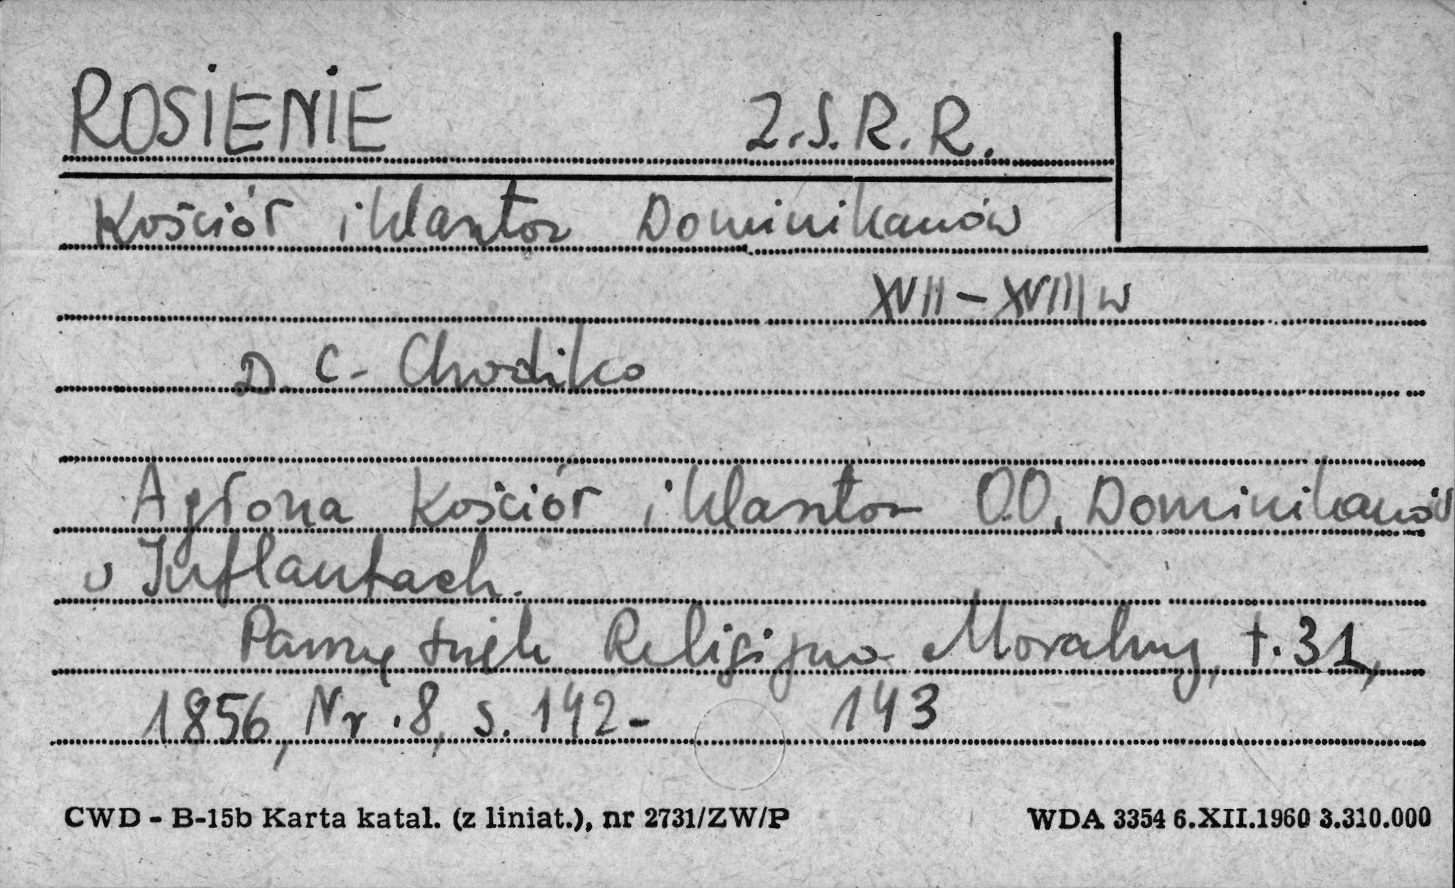 ROSIENIE Z.S.R.R.
Kościół i klasztor Dominikanów
XVII - XVIII w
D. C. Chodźko
Agłona Kościół i klasztor O.O. Dominikanów
w Inflantach.
Pamiętnik Religijno Moralny, t. 31,
1856, Nr. 8, s. 142 - 143
CWD - B-15b Karta katal. (z liniat.), nr 2731/ZW/P WDA 3354 6.XII.1960 3.310.000